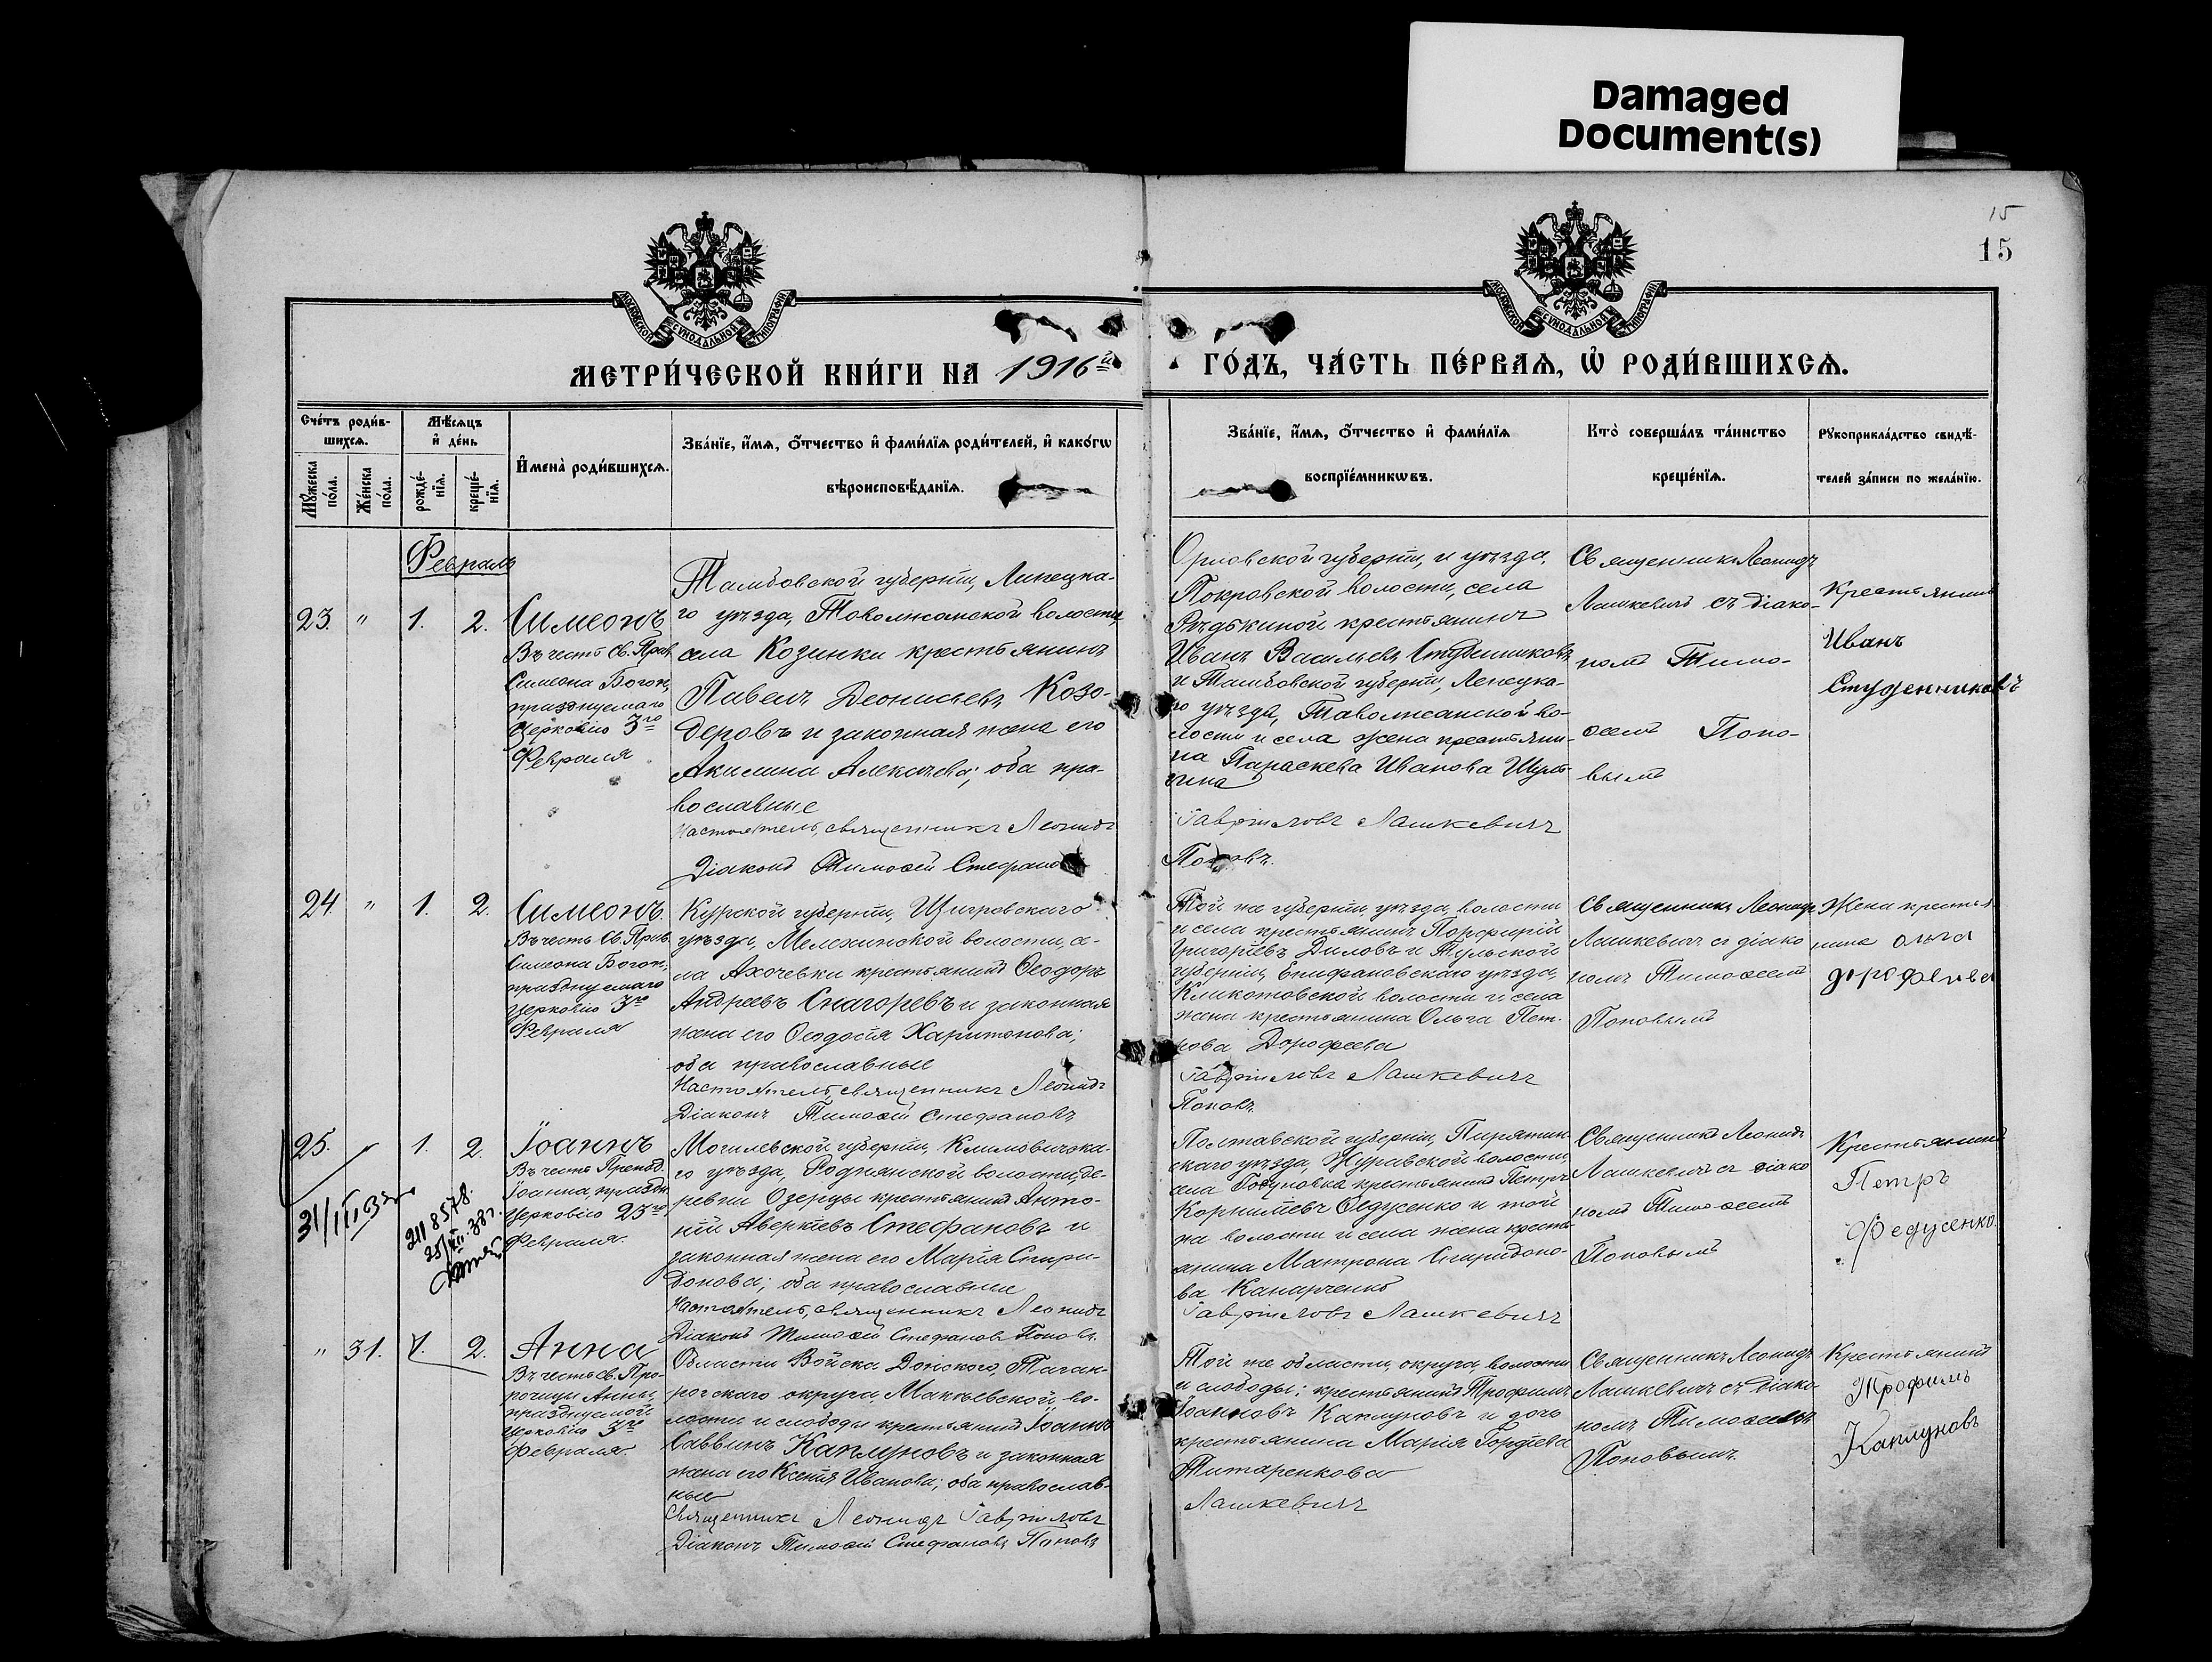 Damaged
Document(s)
15
15
МОСКОВСКОЙ СѴНОДАЛЬНОЙ ТИПОГРАФІИ
МОСКОВСКОЙ СѴНОДАЛЬНОЙ ТИПОГРАФІИ
МЕТРИ́ЧЕСКОЙ КНИ́ГИ НА 1916й
ГО́ДЪ, ЧА́СТЬ ПЕ́РВАѦ, Ѽ РОДИ́ВШИХСѦ.
Сче́тъ роди́в-
шихсѧ.
Мꙋ́жеска
по́ла.
Же́нска
по́ла.
Мѣ́сѧцъ
и҆ де́нь
рожде́-
нїѧ.
креще́-
нїѧ.
И҆мена̀ роди́вшихсѧ.
Зва́нїе, и҆́мѧ, ѻ҆́тчество и҆ фами́лїѧ роди́телей, и҆ како́гѡ
вѣроисповѣ́данїѧ.
Зва́нїе, и҆́мѧ, ѻ҆́тчество и҆ фами́лїѧ
воспрїе́мникѡвъ.
Кто̀ соверша́лъ та́инство
креще́нїѧ.
Рꙋкоприкла́дство свидѣ́-
телей за́писи по жела́нїю.
Февраль
23. " 1. 2.
Симеонъ
Въ честь Св. Прав.
Симеона Богоп.,
празднуемаго
Церковію 3го
Февраля
Тамбовской губерніи, Липецка-
го уѣзда, Таволжанской волости,
села Козинки крестьянинъ
Павелъ Деонисьевъ Козо-
деровъ и законная жена его
Акилина Алексѣева; оба пра-
вославные
Настоятель, священникъ Леонидъ
Діаконъ Тимоѳей Стефановъ
Орловской губерніи, и уѣзда,
Покровской волости, села
Рѣдькиной крестьянинъ
Иванъ Васильевъ Студенниковъ
и Тамбовской губерніи, Липецка-
го уѣзда, Таволжанской во-
лости и села жена крестьяни-
на Параскева Иванова
Гавріиловъ Лашкевичъ
Поповъ.
Священникъ Леонидъ
Лашкевичъ съ діако-
номъ Тимо-
ѳеемъ Попо-
вымъ
Крестьянинъ
Иванъ
Студенниковъ
24. " 1. 2.
Симеонъ.
Въ честь Св. Прав.
Симеона Богоп.,
празднуемаго
Церковію 3го
Февраля
Курской губерніи, Щигровскаго
уѣзда, Мелехинской волости, се-
ла Ахочевки крестьянинъ Ѳеодоръ
Андреевъ Снагоревъ и законная
жена его Ѳеодосія Харитонова;
оба православные
Настоятель, священникъ Леонидъ
Діаконъ Тимоѳей Стефановъ
Той же губерніи, уѣзда, волости
и села крестьянинъ Порфирій
Григоріевъ Диловъ и Тульской
губерніи, Епифановскаго уѣзда,
волости и села
жена крестьянина Ольга Пет-
рова Дорофеева
Гавріиловъ Лашкевичъ
Поповъ
Священникъ Леонидъ
Лашкевичъ съ діако
номъ Тимоѳеемъ
Поповымъ
Жена крестья-
нина Ольга
Дорофеева
25. 1. 2.
31/III 32
2118578.
Іоаннъ
Въ честь Препод.
Іоанна, праздн.
Церковію 23го
Февраля.
Могилевской губерніи, Климовичска-
го уѣзда, Роднянской волости, де-
ревни Озерцы крестьянинъ Анто-
ній Аверкіевъ Стефановъ и
законная жена его Марія Спири-
донова; оба православные
Настоятель, священникъ Леонидъ
Діаконъ Тимоѳей Стефановъ Поповъ.
Полтавской губерніи, Пирятин-
скаго уѣзда, Журавской волости,
села крестьянинъ Петръ
Корниліевъ Ѳедусенко и той
же волости и села жена кресть-
янина Матрона Спиридоно-
ва
Гавріиловъ Лашкевичъ
Священникъ Леонидъ
Лашкевичъ съ діако
номъ Тимоѳеемъ
Поповымъ
Крестьянинъ
Петръ
Федусенко.
" 31. 1. 2.
Анна
Въ честь Св. Про-
рочицы Анны,
празднуемой
Церковію 3го
Февраля.
Области Войска Донского, Таган-
рогскаго округа, Макѣевской, во-
лости и слободы крестьянинъ Іоаннъ
Саввинъ Каплуновъ и законная
жена его Ксенія Иванова; оба православ-
ные
Священникъ Леонидъ Гавріиловъ
Діаконъ Тимоѳей Стефановъ Поповъ
Той же области, округа волости
и слободы; крестьянинъ Трофимъ
Іоанновъ Каплуновъ и дочь
крестьянина Марія Гордіева
Титаренкова
Лашкевичъ
Священникъ Леонидъ
Лашкевичъ съ діако-
номъ Тимоѳеемъ
Поповымъ.
Крестьянинъ
Трофимъ
Каплуновъ